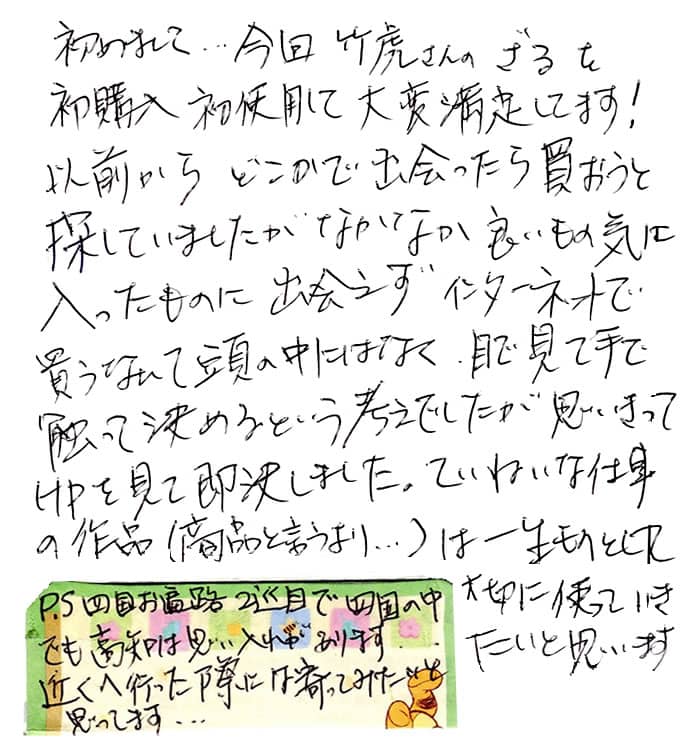 初めまして…今回 竹虎さんの ざるを
初購入 初使用して 大変満足してます!
以前から どこかで 出会ったら 買おうと
探していましたが なかなか 良いもの 気に
入ったものに 出会えず インターネットで
買うなんて 頭の中にはなく、目で見て手で
触って 決めるという 考えでしたが 思いきって
HPを見て 即決しました。ていねいな仕事
の作品(商品と言うより…)は 一生ものとして
大切に 使っていき
たいと思います
P.S 四国お遍路 2巡目で 四国の中
でも 高知は思い入れがあります…
近くへ行った際には寄ってみたいと
思ってます…